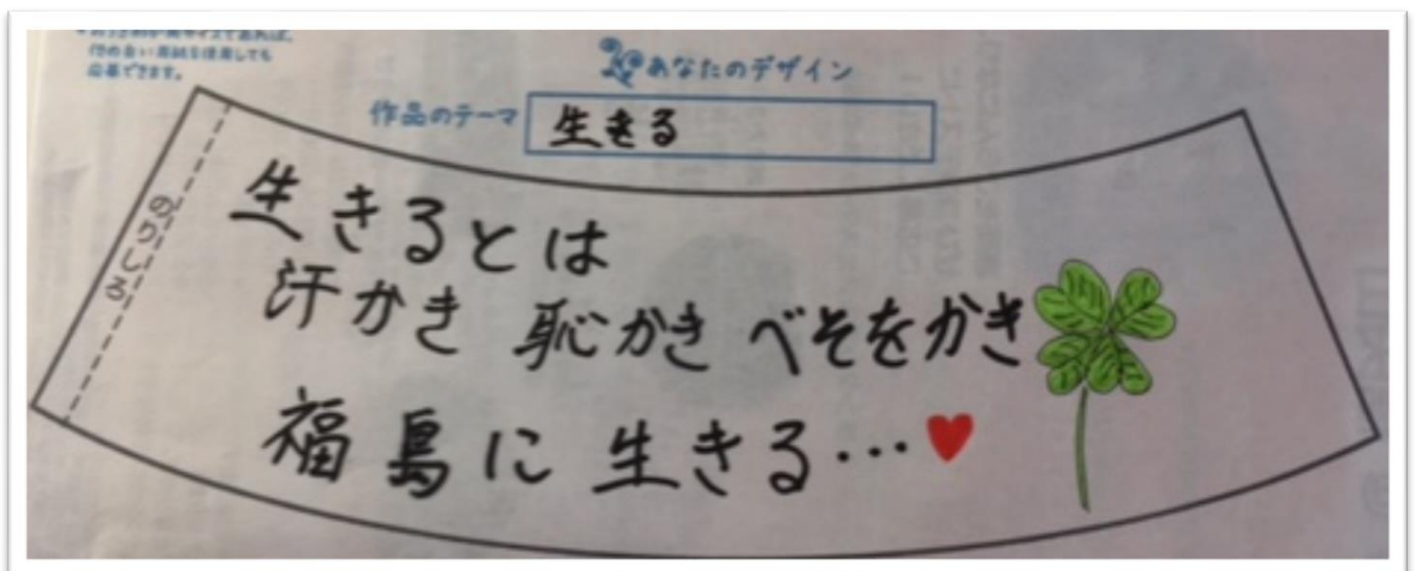 応募できます。
あなたのデザイン
作品のテーマ
生きる
のりしろ
生きるとは
汗かき 恥かき べそをかき
福島に 生きる…